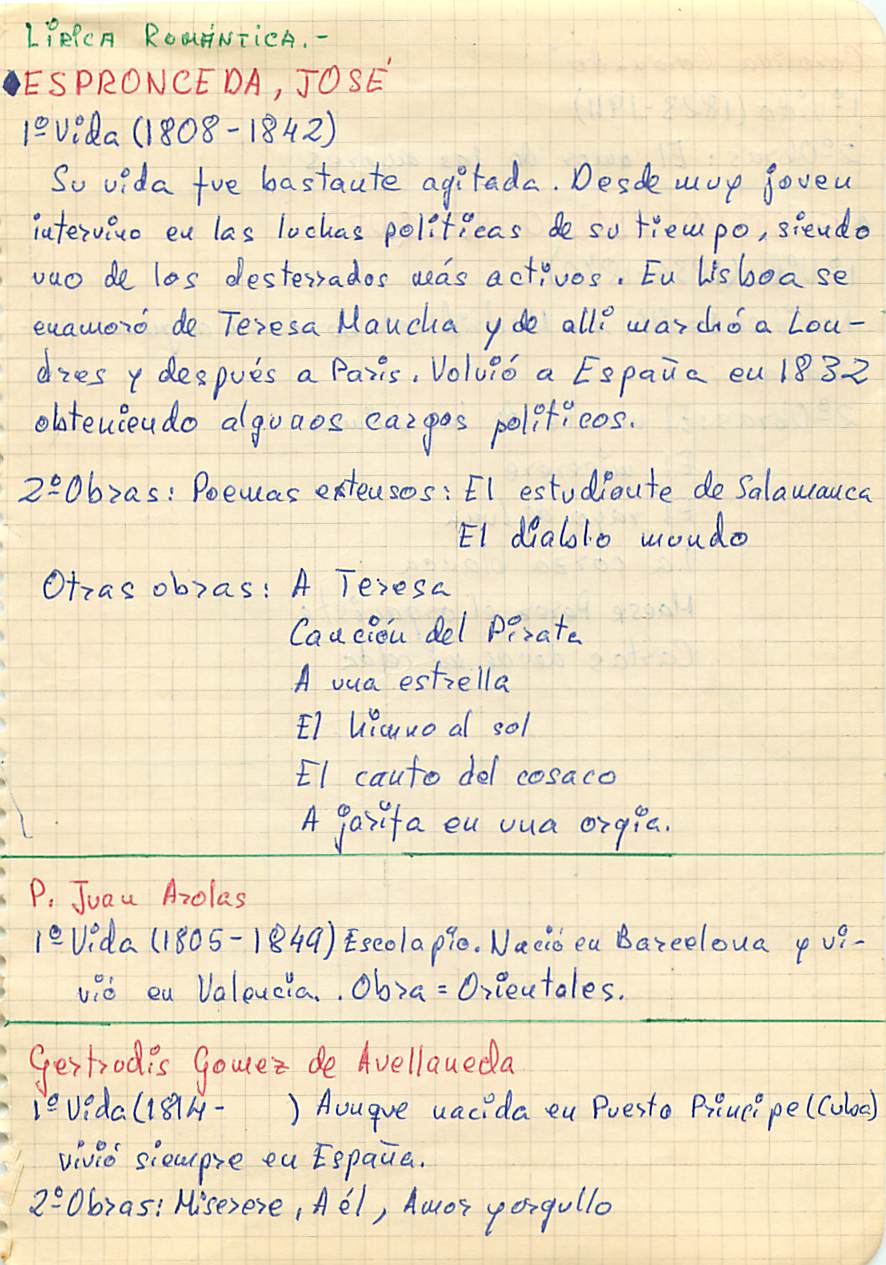 LÍRICA ROMÁNTICA.-
ESPRONCEDA, JOSÉ
1º Vida (1808-1842)
Su vida fue bastante agitada. Desde muy joven
intervino en las luchas políticas de su tiempo, siendo
uno de los desterrados más activos. En Lisboa se
enamoró de Teresa Mancha y de allí marchó a Lon-
dres y después a París. Volvió a España en 1832
obteniendo algunos cargos políticos.
2º Obras: Poemas extensos: El estudiante de Salamanca
El diablo mundo
Otras obras: A Teresa
Canción del Pirata
A una estrella
El himno al sol
El canto del cosaco
A jarifa en una orgía.
P. Juan Arolas
1º Vida (1805-1849) Escolapio. Nació en Barcelona y vi-
vió en Valencia. . Obra = Orientales.
Gertrudis Gomez de Avellaneda
1º Vida (1814-    ) Aunque nacida en Puerto Príncipe (Cuba)
vivió siempre en España.
2º Obras: Miserere, A él, Amor y orgullo